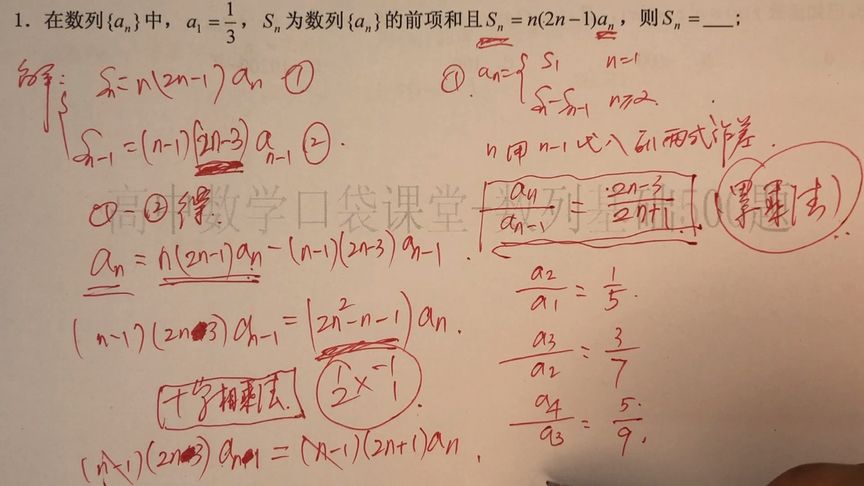 1. 在数列{aₙ}中，a₁ = 1/3，Sₙ为数列{aₙ}的前项和且Sₙ = n(2n−1)aₙ，则Sₙ = ___；
解：Sₙ = n(2n−1)aₙ ①
Sₙ₋₁ = (n−1)(2n−3)aₙ₋₁ ②.
①−②得.
aₙ = n(2n−1)aₙ − (n−1)(2n−3)aₙ₋₁.
(n−1)(2n−3)aₙ₋₁ = (2n²−n−1)aₙ.
十字相乘法. 1 2 × −1 1.
(n−1)(2n−3)aₙ₋₁ = (n−1)(2n+1)aₙ.
① aₙ = { S₁ n=1
Sₙ−Sₙ₋₁ n≥2.
n用n−1代入 两式作差.
aₙ/aₙ₋₁ = 2n−3/2n+1. (累乘法)
a₂/a₁ = 1/5.
a₃/a₂ = 3/7
a₄/a₃ = 5/9.
高中数学口袋课堂-数列基础500题